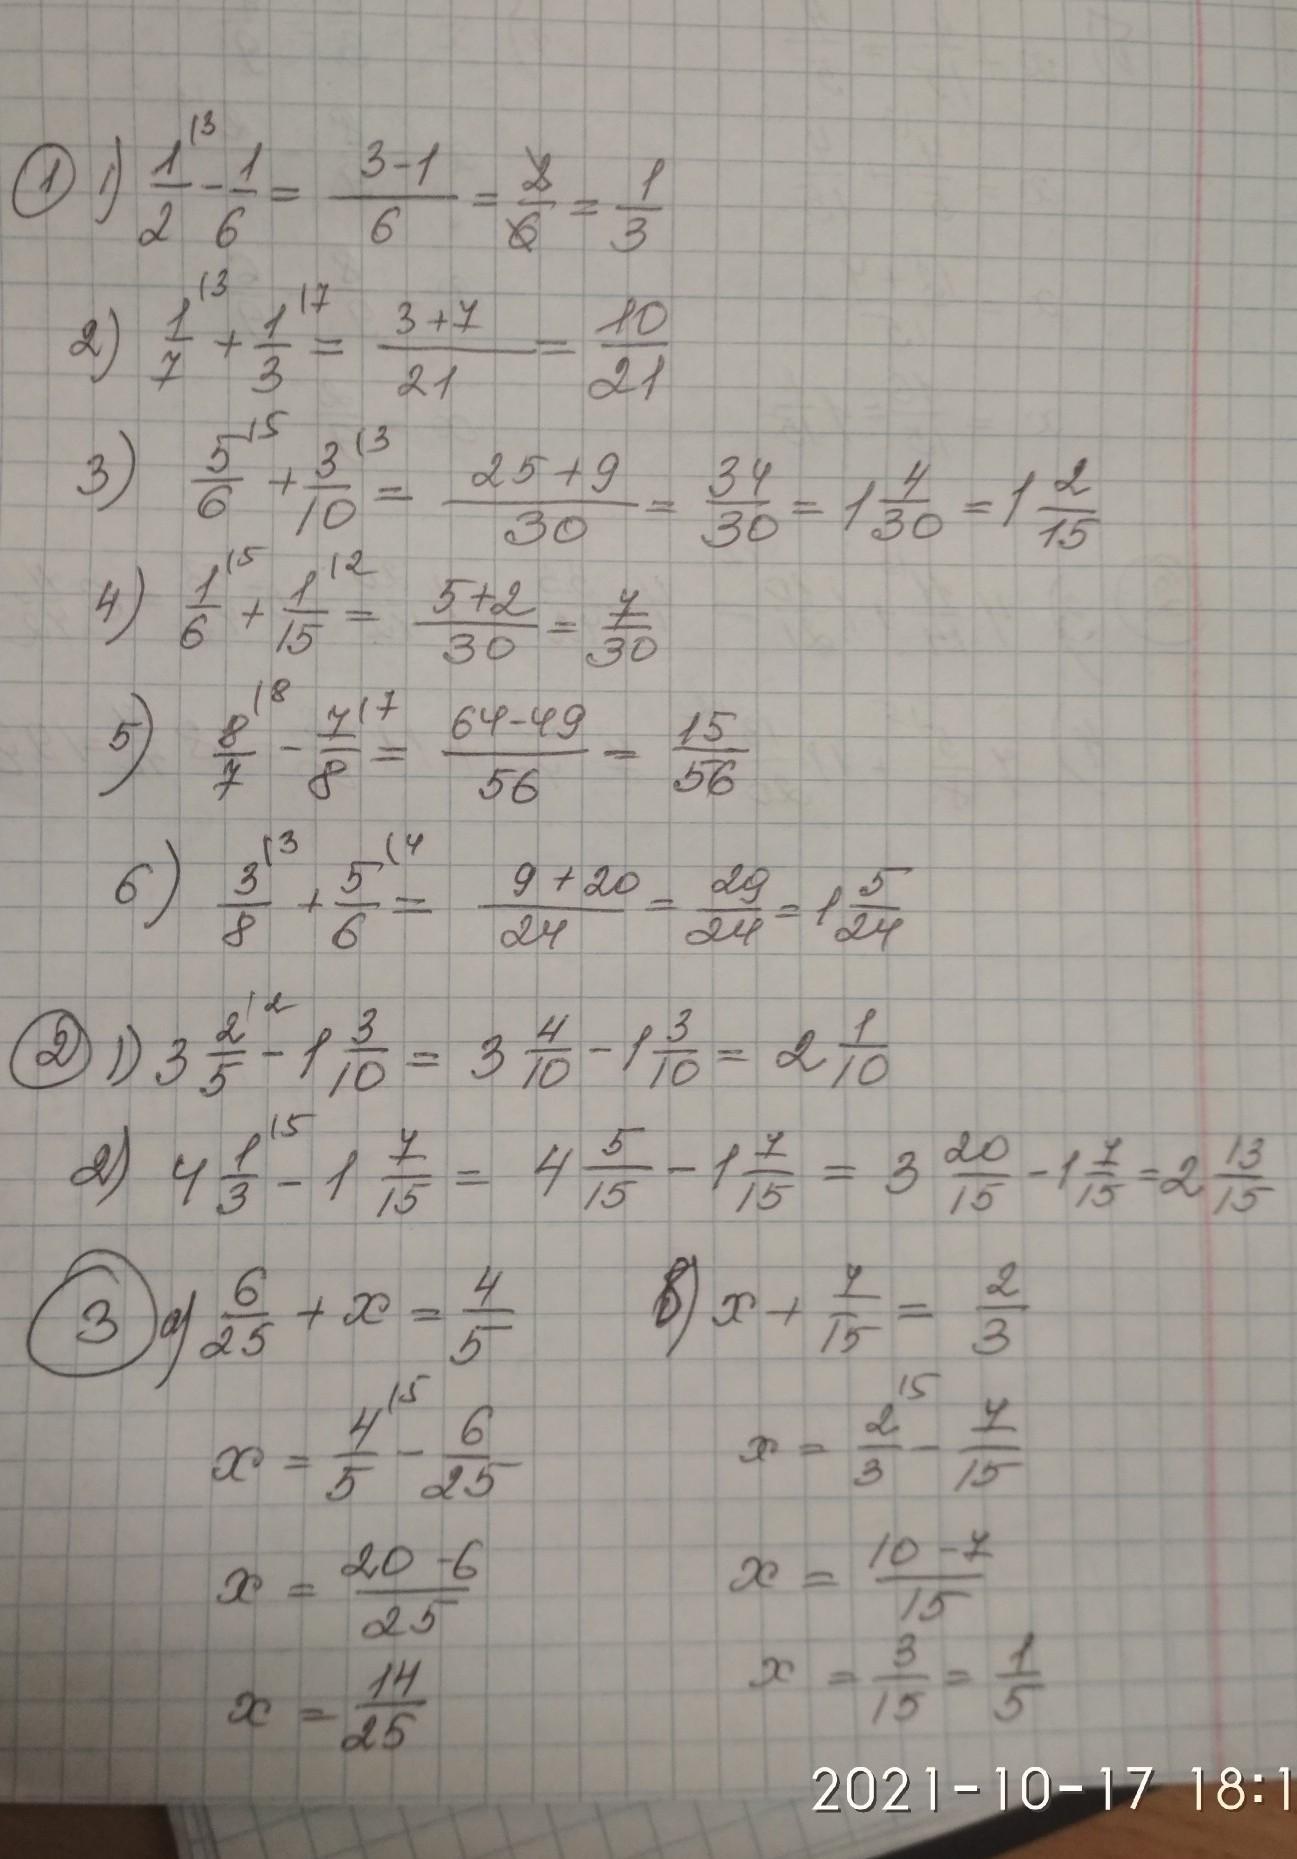 ① 1) 1/2 ⁽³ - 1/6 = (3-1)/6 = 2/6 = 1/3
2) 1/7 ⁽³ + 1/3 ⁽⁷ = (3+7)/21 = 10/21
3) 5/6 ⁽⁵ + 3/10 ⁽³ = (25+9)/30 = 34/30 = 1 4/30 = 1 2/15
4) 1/6 ⁽⁵ + 1/15 ⁽² = (5+2)/30 = 7/30
5) 8/7 ⁽⁸ - 7/8 ⁽⁷ = (64-49)/56 = 15/56
6) 3/8 ⁽³ + 5/6 ⁽⁴ = (9+20)/24 = 29/24 = 1 5/24
② 1) 3 2/5 ⁽² - 1 3/10 = 3 4/10 - 1 3/10 = 2 1/10
2) 4 1/3 ⁽⁵ - 1 7/15 = 4 5/15 - 1 7/15 = 3 20/15 - 1 7/15 = 2 13/15
③ а) 6/25 + x = 4/5
x = 4/5 ⁽⁵ - 6/25
x = (20-6)/25
x = 14/25
б) x + 7/15 = 2/3
x = 2/3 ⁽⁵ - 7/15
x = (10-7)/15
x = 3/15 = 1/5
2021-10-17 18:1